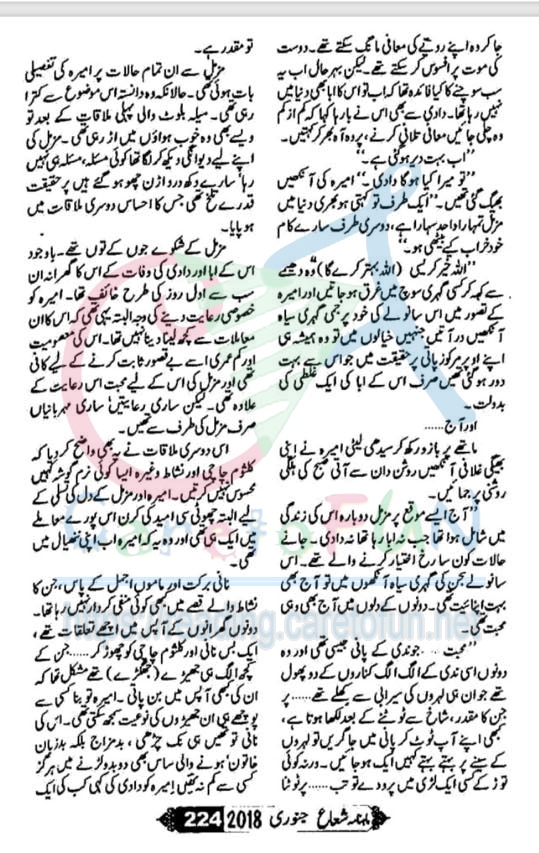 جا کر وہ اپنے رویے کی معافی مانگ سکتے تھے۔ دوست
کی موت پر افسوس کر سکتے تھے۔ لیکن بہرحال اب یہ
سب سوچنے کا کیا فائدہ تھا کہ اب تو اس کا ابا بھی دنیا میں
نہیں رہا تھا۔ دادی سے بھی اس نے بارہا کہا کہ کم از کم
وہ چلی جائیں معافی تلافی کرنے، پر وہ آہ بھر کر کہتیں۔
”اب بہت دیر ہو گئی ہے۔“
”تو میرا کیا ہوگا دادی۔“ امیرہ کی آنکھیں
بھیگ گئی تھیں۔ ”ایک طرف تو کہتی ہو بھری دنیا میں
مزمل تمہارا واحد سہارا ہے، دوسری طرف سارے کام
خود خراب کیے بیٹھی ہو۔“
”اللہ خیر کریسی (اللہ بہتر کرے گا)“ وہ دھیمے
سے کہہ کر کسی گہری سوچ میں غرق ہو جاتیں اور امیرہ
کے تصور میں اس سانولے کی خود پر جمی گہری سیاہ
آنکھیں در آتیں جنہیں خیالوں میں تو وہ ہمیشہ ہی
اپنے اوپر مرکوز پاتی پر حقیقت میں جو اس سے بہت
دور ہو گئی تھیں صرف اس کے ابا کی ایک غلطی کی
بدولت۔
اور آج ......
ماتھے پر بازو رکھ کر سیدھی لیٹی امیرہ نے اپنی
بھیگی غلافی آنکھیں روشن دان سے آتی صبح کی ہلکی
روشنی پر جمائیں۔
”آج ایسے موقع پر مزمل دوبارہ اس کی زندگی
میں شامل ہوا تھا جب نہ ابا رہا تھا نہ دادی۔ جانے
حالات کون سا رخ اختیار کرنے والے تھے۔ اس
سانولے جن کی گہری سیاہ آنکھوں میں تو آج بھی
بہت اپنائیت تھی۔ دونوں کے دلوں میں آج بھی وہی
محبت تھی۔
”محبت ...... جو ندی کے پانی جیسی تھی اور وہ
دونوں اسی ندی کے الگ الگ کناروں کے دو پھول
تھے جو ان ہی لہروں کی سیرابی سے کھلے تھے ...... پر
جن کا مقدر، شاخ سے ٹوٹنے کے بعد لکھا ہوتا ہے،
کبھی اپنے آپ ٹوٹ کر پانی میں جا گریں تو لہروں
کے سینے پر بہتے بہتے کہیں ایک ہو جائیں۔ ورنہ کوئی
توڑ کے کسی ایک لڑی میں پرو دے تو تب ...... پر ٹوٹنا
تو مقدر ہے۔
مزمل سے ان تمام حالات پر امیرہ کی تفصیلی
بات ہوئی تھی۔ حالانکہ وہ دانستہ اس موضوع سے کترا
رہی تھی۔ میلہ بلوٹ والی پہلی ملاقات کے بعد تو
ویسے بھی وہ خوب ہواؤں میں اڑ رہی تھی۔ مزمل کی
اپنے لیے دیوانگی دیکھ کر لگا تھا کوئی مسئلہ، مسئلہ ہی نہیں
رہا سارے دکھ درد اڑن چھو ہو گئے ہیں پر حقیقت
قدرے تلخ تھی جس کا احساس دوسری ملاقات میں
ہو پایا۔
مزمل کے شکوے جوں کے توں تھے۔ باوجود
اس کے ابا اور دادی کی وفات کے اس کا گھرانہ ان
سب سے اول روز کی طرح خائف تھا۔ امیرہ کو
خصوصی رعایت دینے کی وجہ البتہ یہی تھی کہ اس کا ان
معاملات سے کچھ لینا دینا نہیں تھا۔ اس کی معصومیت
اور کم عمری اسے بے قصور ثابت کرنے کے لیے کافی
تھی اور مزمل کی اس کے لیے محبت اس رعایت کے
علاوہ تھی۔ لیکن ساری رعایتیں، ساری مہربانیاں
صرف مزمل کی طرف سے تھیں۔
اس دوسری ملاقات نے یہ بھی واضح کر دیا کہ
کلثوم چاچی اور نشاط وغیرہ ایسا کوئی نرم گوشہ نہیں
محسوس نہیں کرتیں۔ امیرہ اور مزمل کے دل کی تسلی کے
لیے البتہ چھوٹی سی امید کی کرن اس پورے معاملے
میں ایک ہی تھی اور وہ یہ کہ امیرہ اب اپنی ننھیال میں
تھی۔
نانی برکت اور ماموں اجمل کے پاس، جن کا
نشاط والے قصے میں کبھی کوئی منفی کردار نہیں رہا تھا۔
دونوں گھرانوں کے آپس میں اچھے تعلقات تھے،
ایک بس نانی اور کلثوم چاچی کو چھوڑ کر ...... جن کے
کچھ الگ ہی جھیڑے (جھگڑے) تھے مشکل تھا کہ
ان کی بھی آپس میں بن پاتی۔ امیرہ تو بنا کسی سے
پوچھے ہی ان جھیڑوں کی نوعیت سمجھ سکتی تھی۔ اس کی
نانی تو تھیں ہی تک چڑھی، بدمزاج بلکہ بدزبان
خاتون ہونے والی ساس بھی دوبدو لڑنے میں ہرگز
کسی سے کم نہ تھیں امیرہ کو دادی کی کہی کب کی ایک
ماہنامہ شعاع جنوری 2018 224
CaretoFUN
https://reading.caretofun.net